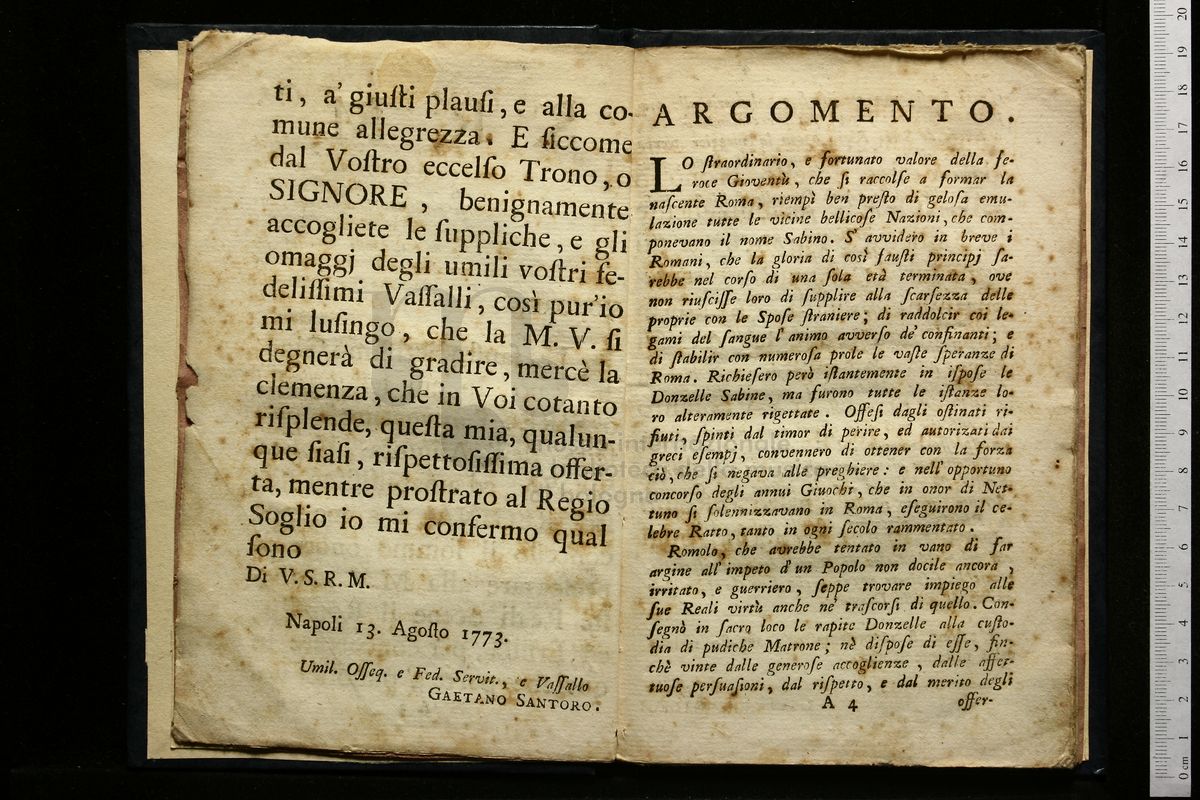 ti, a' giuſti plauſi, e alla co-
mune allegrezza. E ſiccome
dal Voſtro eccelſo Trono, o
SIGNORE, benignamente
accogliete le ſuppliche, e gli
omaggj degli umili voſtri fe-
deliſſimi Vaſſalli, così pur'io
mi luſingo, che la M. V. ſi
degnerà di gradire, mercè la
clemenza, che in Voi cotanto
riſplende, queſta mia, qualun-
que ſiaſi, riſpettoſiſſima offer-
ta, mentre proſtrato al Regio
Soglio io mi confermo qual
ſono
Di V. S. R. M.
Napoli 13. Agoſto 1773.
Umil. Oſſeq. e Fed. Servit., e Vaſſallo
GAETANO SANTORO.
ARGOMENTO.
LO ſtraordinario, e fortunato valore della fe-
roce Gioventù, che ſi raccolſe a formar la
naſcente Roma, riempì ben preſto di geloſa emu-
lazione tutte le vicine bellicoſe Nazioni, che com-
ponevano il nome Sabino. S' avvidero in breve i
Romani, che la gloria di così fauſti principj ſa-
rebbe nel corſo di una ſola età terminata, ove
non riuſciſſe loro di ſupplire alla ſcarſezza delle
proprie con le Spoſe ſtraniere; di raddolcir coi le-
gami del ſangue l' animo avverſo de' confinanti; e
di ſtabilir con numeroſa prole le vaſte ſperanze di
Roma. Richieſero però iſtantemente in iſpoſe le
Donzelle Sabine, ma furono tutte le iſtanze lo-
ro alteramente rigettate. Offeſi dagli oſtinati ri-
fiuti, ſpinti dal timor di perire, ed autorizati dai
greci eſempj, convennero di ottener con la forza
ciò, che ſi negava alle preghiere: e nell' opportuno
concorſo degli annui Giuochi, che in onor di Net-
tuno ſi ſolennizzavano in Roma, eſeguirono il ce-
lebre Ratto, tanto in ogni ſecolo rammentato.
Romolo, che avrebbe tentato in vano di far
argine all' impeto d' un Popolo non docile ancora,
irritato, e guerriero, ſeppe trovare impiego alle
ſue Reali virtù anche ne' traſcorſi di quello. Con-
ſegnò in ſacro loco le rapite Donzelle alla cuſto-
dia di pudiche Matrone; nè diſpoſe di eſſe, fin-
chè vinte dalle generoſe accoglienze, dalle affet-
tuoſe perſuaſioni, dal riſpetto, e dal merito degli
A 4 offer-
0 cm 1 2 3 4 5 6 7 8 9 10 11 12 13 14 15 16 17 18 19 20